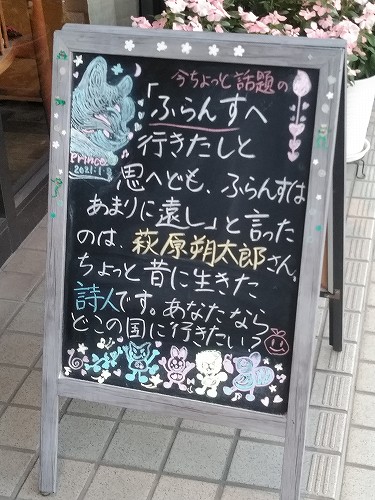 今ちょっと話題の
「ふらんすへ
行きたしと
思へども、ふらんすは
あまりに遠し」と言った
のは、萩原朔太郎さん。
ちょっと昔に生きた
詩人です。あなたなら
どこの国に行きたい？
Prince.